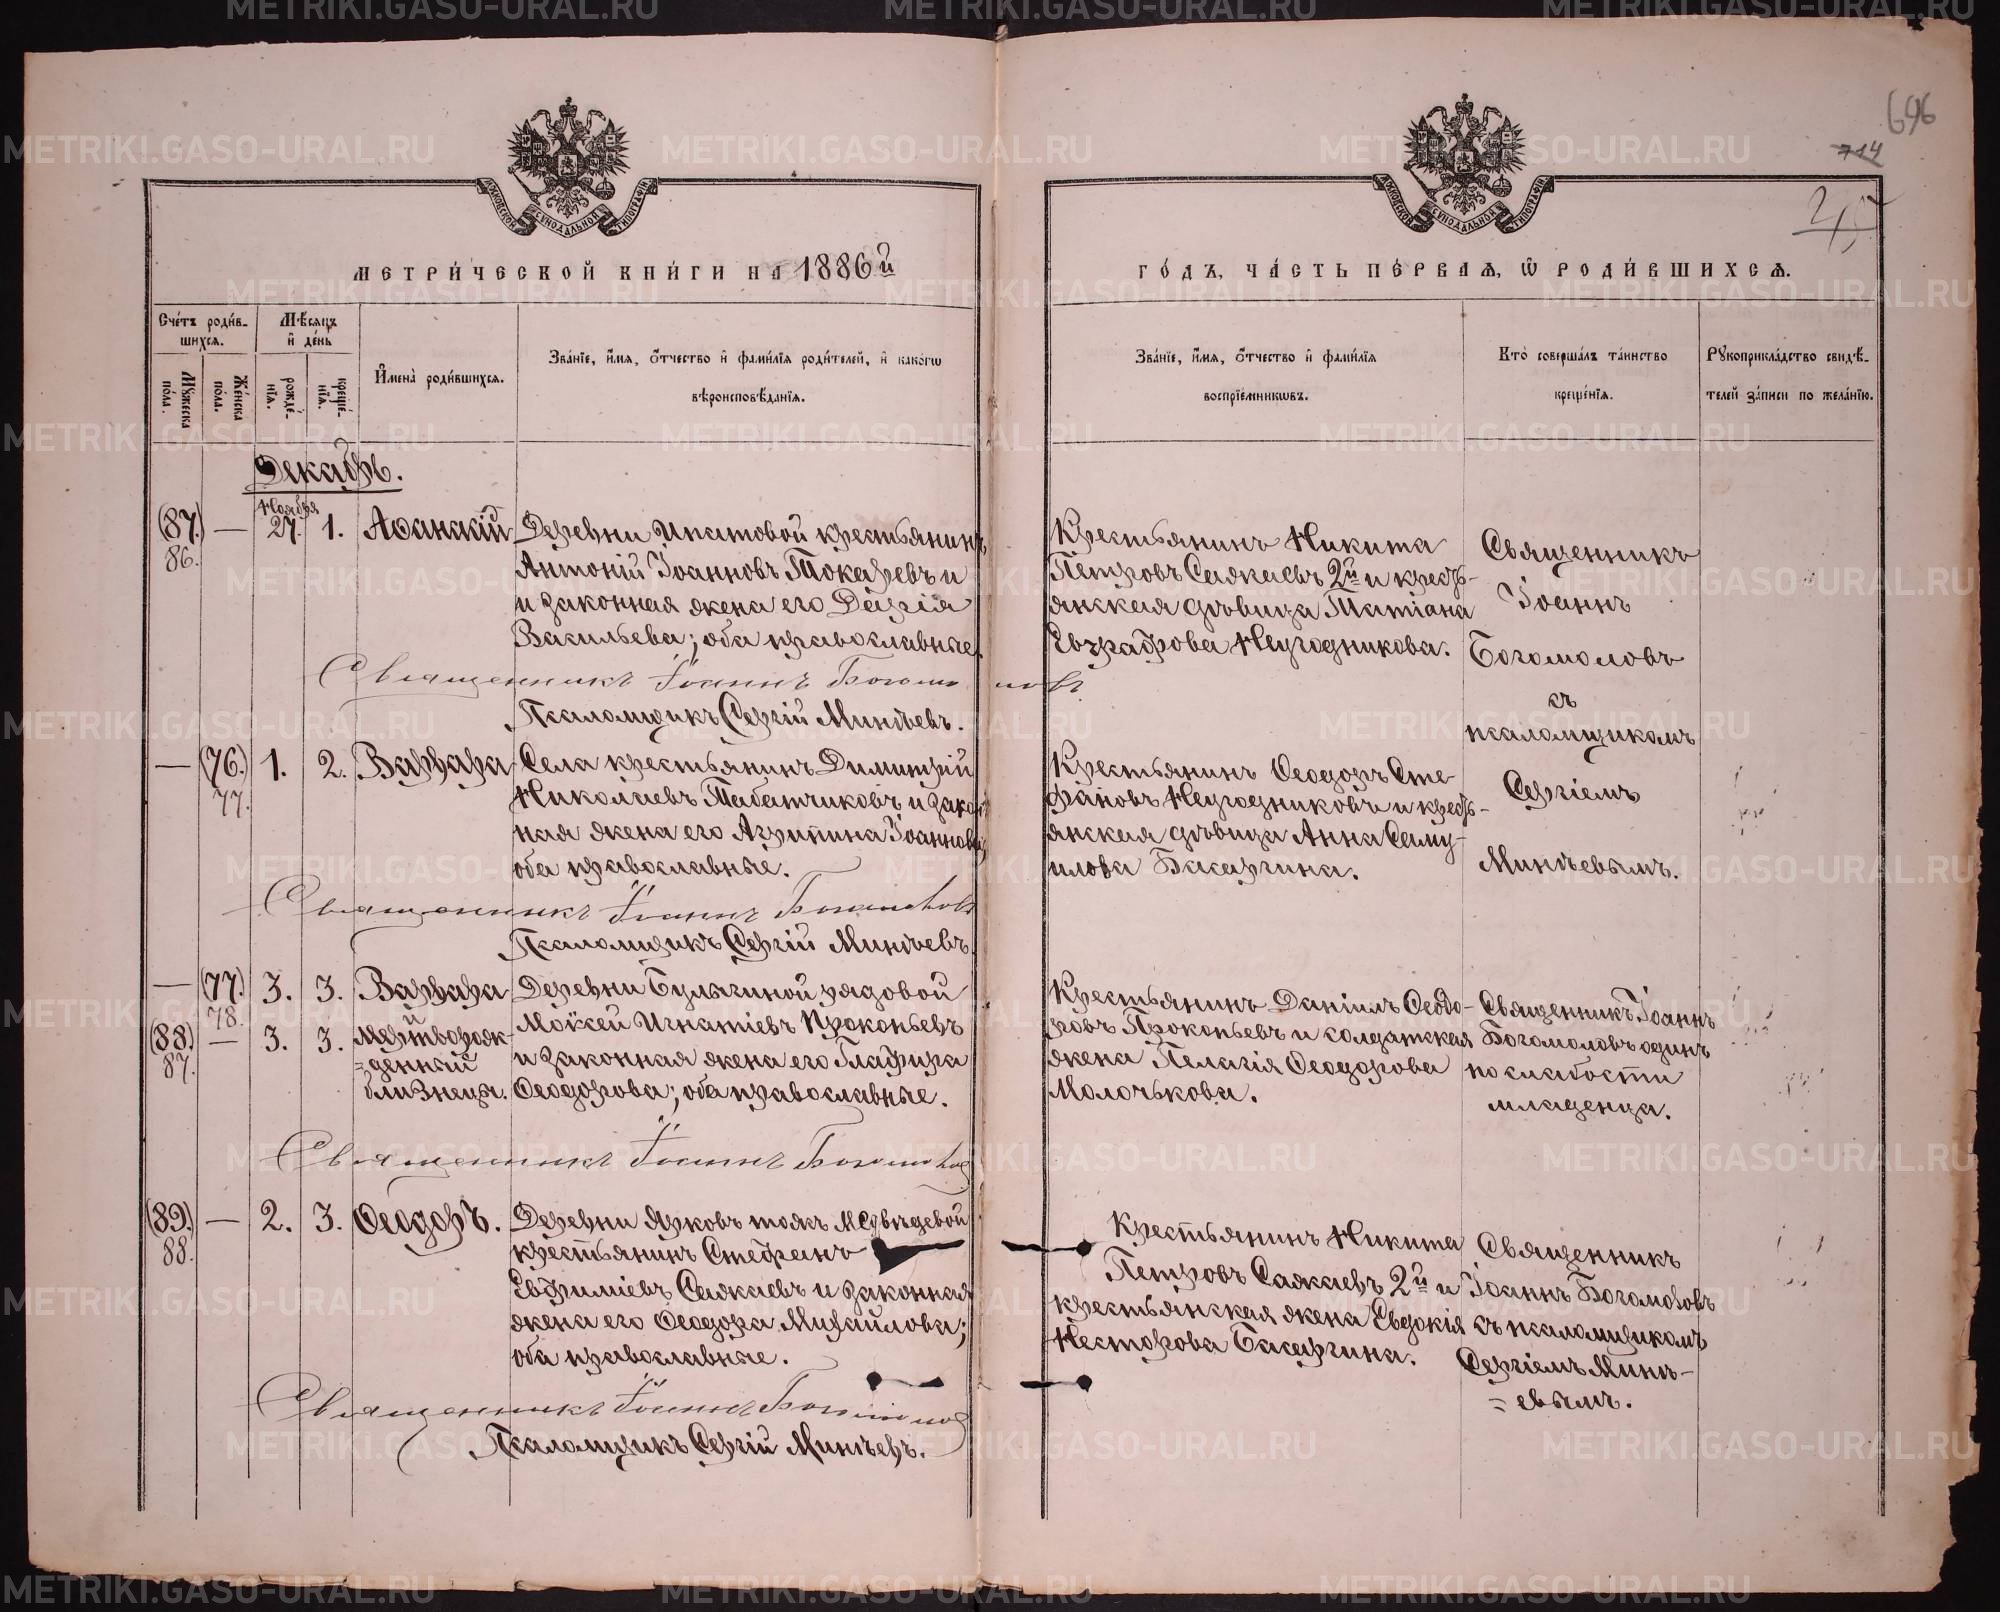 696
714
МЕТРИ́ЧЕСКОЙ КНИ́ГИ НА 1886й
ГО́ДЪ, ЧА́СТЬ ПЕ́РВАѦ, Ѡ РОДИ́ВШИХСѦ.
Сче́тъ роди́вшихсѧ.
Мꙋжеска по́ла.
Же́нска по́ла.
Мѣ́сѧцъ и де́нь
рожде́нїѧ.
креще́нїѧ.
Имена̀ роди́вшихсѧ.
Зва́нїе, и́мѧ, о́тчество и фами́лїѧ роди́телей, и како́гѡ
вѣроисповѣ́данїѧ.
Зва́нїе, и́мѧ, о́тчество и фами́лїѧ
воспрїе́мникѡвъ.
Кто̀ соверша́лъ та́инство
креще́нїѧ.
Рꙋкоприкла́дство свидѣ́телей за́писи по жела́нїю.
Декабрь.
(87.)
86.
—
Ноября
27.
1.
Аѳанасій
Деревни Ипатовой крестьянинъ
Антоній Іоанновъ Токаревъ и
и законная жена его Дарія
Васильева; оба православные.
Священникъ Іоаннъ Богомоловъ
Псаломщикъ Сергій Минѣевъ.
Крестьянинъ Никита
Петровъ Сажаевъ 2й и кресть-
янская дѣвица Татіана
Евграфова Негодникова.
Священникъ
Іоаннъ
Богомоловъ
съ
псаломщикомъ
Сергіемъ
Минѣевымъ.
—
(76.)
77.
1.
2.
Варвара
Села крестьянинъ Димитрій
Николаевъ Табатчиковъ и закон
ная жена его Агрипина Іоаннова;
оба православные.
Священникъ Іоаннъ Богомоловъ
Псаломщикъ Сергій Минѣевъ.
Крестьянинъ Ѳеодоръ Сте-
фановъ Негодниковъ и кресть-
янская дѣвица Анна Саму-
илова Басаргина.
—
(77.)
78.
3.
3.
Варвара
и
(88.)
87.
—
3.
3.
мертворож-
=денный
близнецъ.
Деревни Булыгиной рядовой
Моисей Игнатіевъ Прокопьевъ
и законная жена его Глафира
Ѳеодорова; оба православные.
Священникъ Іоаннъ Богомоловъ
Крестьянинъ Даніилъ Ѳеодо-
ровъ Прокопьевъ и солдатская
жена Пелагія Ѳеодорова
Молочькова.
Священникъ Іоаннъ
Богомоловъ одинъ
по слабости
младенца.
(89.)
88.
—
2.
3.
Ѳеодоръ.
Деревни Ярковъ тожъ Медвѣдевой
крестьянинъ Стефанъ
Евфиміевъ Сажаевъ и законная
жена его Ѳеодора Михайлова;
оба православные.
Священникъ Іоаннъ Богомоловъ
Псаломщикъ Сергій Минѣевъ.
Крестьянинъ Никита
Петровъ Сажаевъ 2й и
крестьянская жена Евдокія
Несторова Басаргина.
Священникъ
Іоаннъ Богомоловъ
съ псаломщикомъ
Сергіемъ Минѣ-
=евымъ.
METRIKI.GASO-URAL.RU